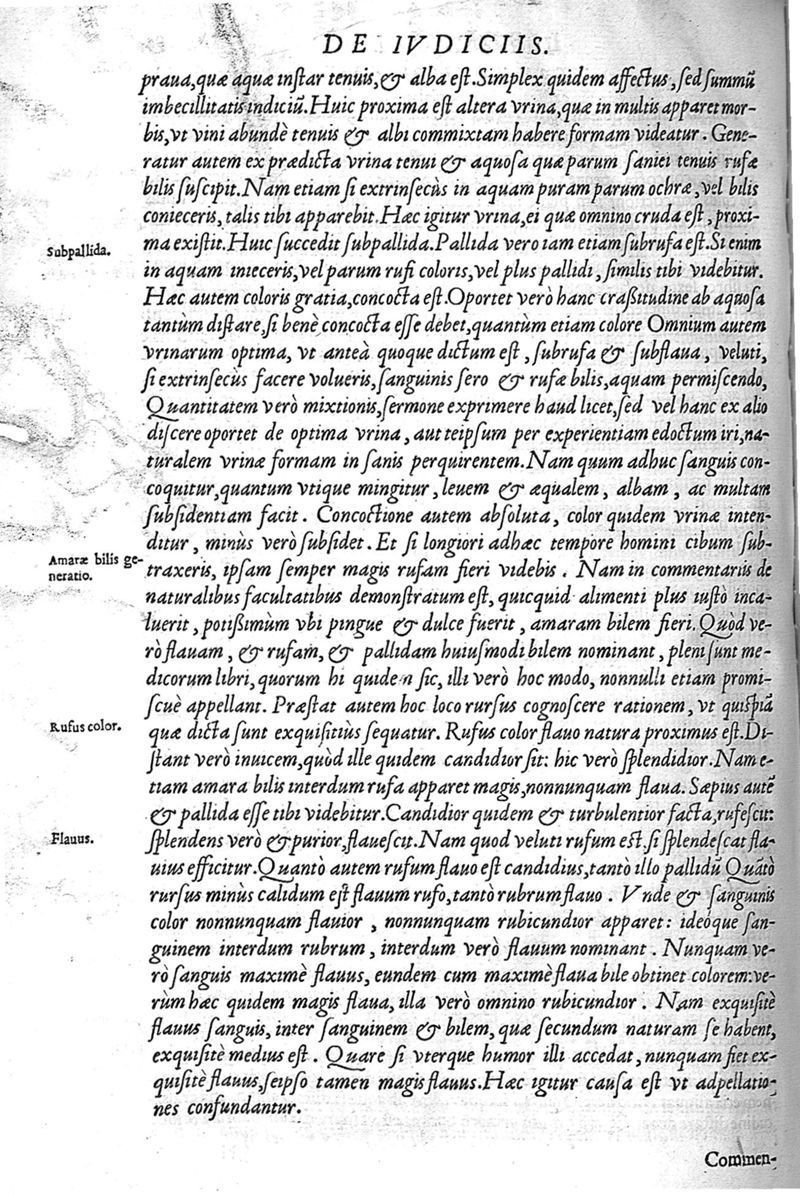 DE IVDICIIS.
praua,quæ aquæ instar tenuis,& alba est.Simplex quidem affectus,sed summũ
imbecillitatis indiciũ.Huic proxima est altera vrina,quæ in multis apparet mor-
bis,vt vini abundè tenuis & albi commixtam habere formam videatur. Gene-
ratur autem ex prædicta vrina tenui & aquosa quæ parum saniei tenuis rufæ
bilis suscipit.Nam etiam si extrinsecùs in aquam puram parum ochræ,vel bilis
conieceris, talis tibi apparebit.Hæc igitur vrina,ei quæ omnino cruda est, proxi-
Subpallida.
ma existit.Huic succedit subpallida.Pallida vero iam etiam subrufa est.Si enim
in aquam inieceris,vel parum rufi coloris,vel plus pallidi, similis tibi videbitur.
Hæc autem coloris gratia,concocta est.Oportet verò hanc craßitudine ab aquosa
tantùm distare,si benè concocta esse debet,quantùm etiam colore Omnium autem
vrinarum optima, vt anteà quoque dictum est, subrufa & subflaua, veluti,
si extrinsecùs facere volueris,sanguinis sero & rufæ bilis,aquam permiscendo,
Quantitatem verò mixtionis,sermone exprimere haud licet,sed vel hanc ex alio
discere oportet de optima vrina, aut teipsum per experientiam edoctum iri,na-
turalem vrinæ formam in sanis perquirentem.Nam quum adhuc sanguis con-
coquitur,quantum vtique mingitur, leuem & æqualem, albam, ac multam
subsidentiam facit. Concoctione autem absoluta, color quidem vrinæ inten-
ditur, minùs verò subsidet. Et si longiori adhæc tempore homini cibum sub-
Amaræ bilis ge-
neratio.
traxeris, ipsam semper magis rufam fieri videbis. Nam in commentariis de
naturalibus facultatibus demonstratum est, quicquid alimenti plus iustò inca-
luerit, potißimùm vbi pingue & dulce fuerit, amaram bilem fieri.Quòd ve-
rò flauam, & rufam, & pallidam huiusmodi bilem nominant, pleni sunt me-
dicorum libri, quorum hi quidem sic, illi verò hoc modo, nonnulli etiam promi-
scuè appellant. Præstat autem hoc loco rursus cognoscere rationem, vt quispiã
Rufus color.
quæ dicta sunt exquisitiùs sequatur. Rufus color flauo natura proximus est.Di-
stant verò inuicem,quòd ille quidem candidior sit: hic verò splendidior.Nam e-
tiam amara bilis interdum rufa apparet magis,nonnunquam flaua. Sæpius autẽ
& pallida esse tibi videbitur.Candidior quidem & turbulentior facta,rufescit:
Flauus.
splendens verò & purior,flauescit.Nam quod veluti rufum est,si splendescat fla-
uius efficitur.Quantò autem rufum flauo est candidius,tantò illo pallidũ Quãtò
rursus minùs calidum est flauum rufo,tantò rubrum flauo. Vnde & sanguinis
color nonnunquam flauior, nonnunquam rubicundior apparet: ideóque san-
guinem interdum rubrum, interdum verò flauum nominant. Nunquam ve-
rò sanguis maximè flauus, eundem cum maximè flaua bile obtinet colorem:ve-
rùm hæc quidem magis flaua, illa verò omnino rubicundior. Nam exquisitè
flauus sanguis, inter sanguinem & bilem, quæ secundum naturam se habent,
exquisitè medius est. Quare si vterque humor illi accedat, nunquam fiet ex-
quisitè flauus,seipso tamen magis flauus.Hæc igitur causa est vt adpellatio-
nes confundantur.
Commen-